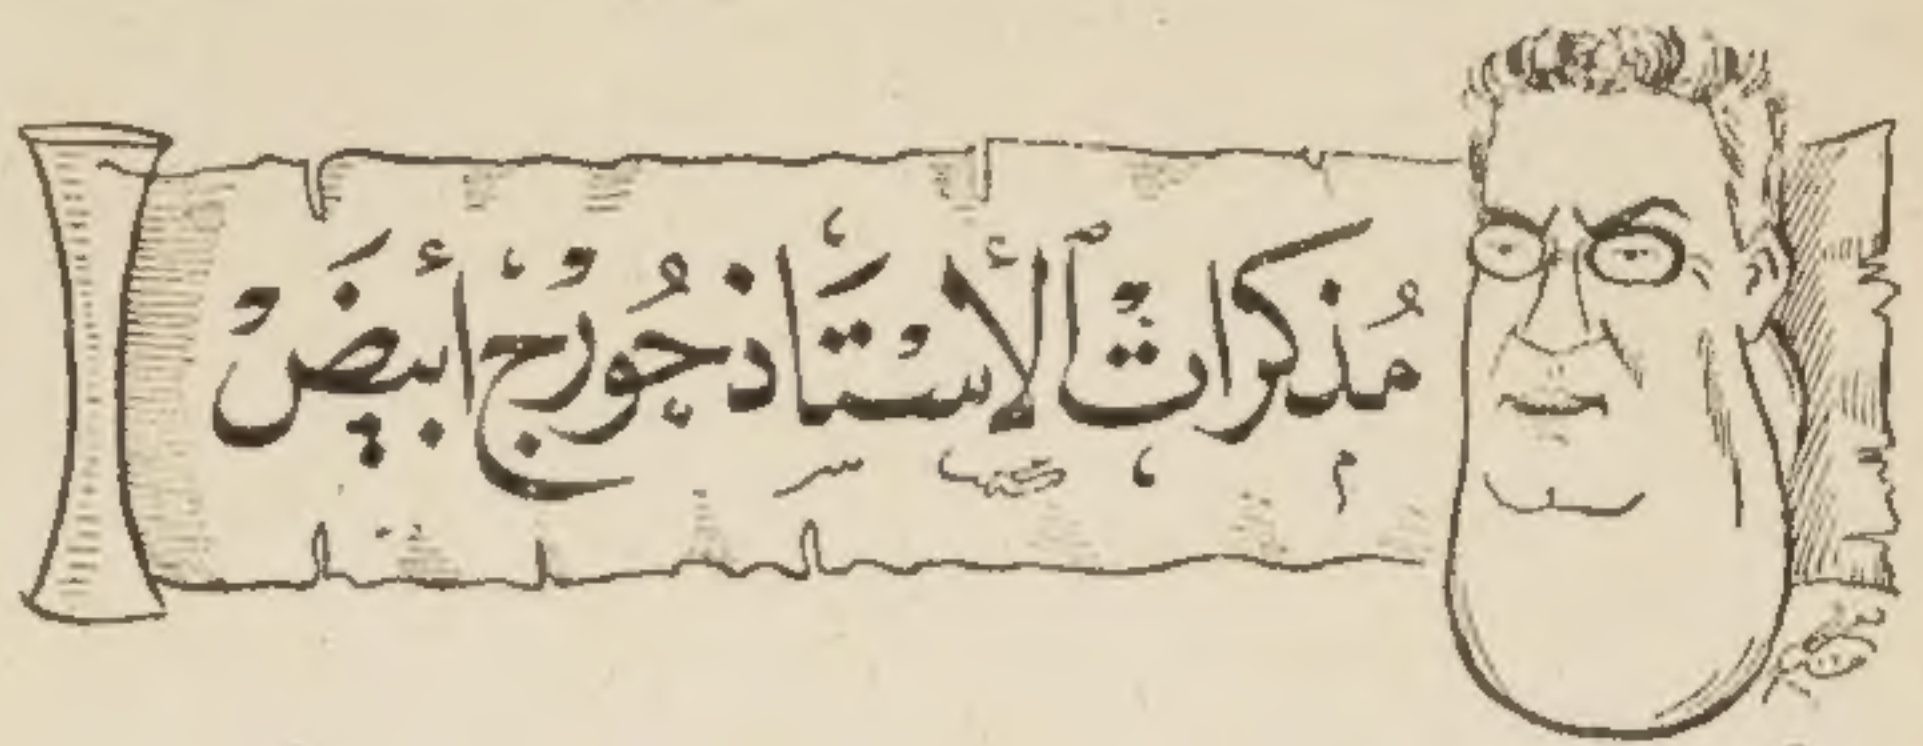 مُذكراتْ الأسْتَاذ جُورْج أبيَضْ